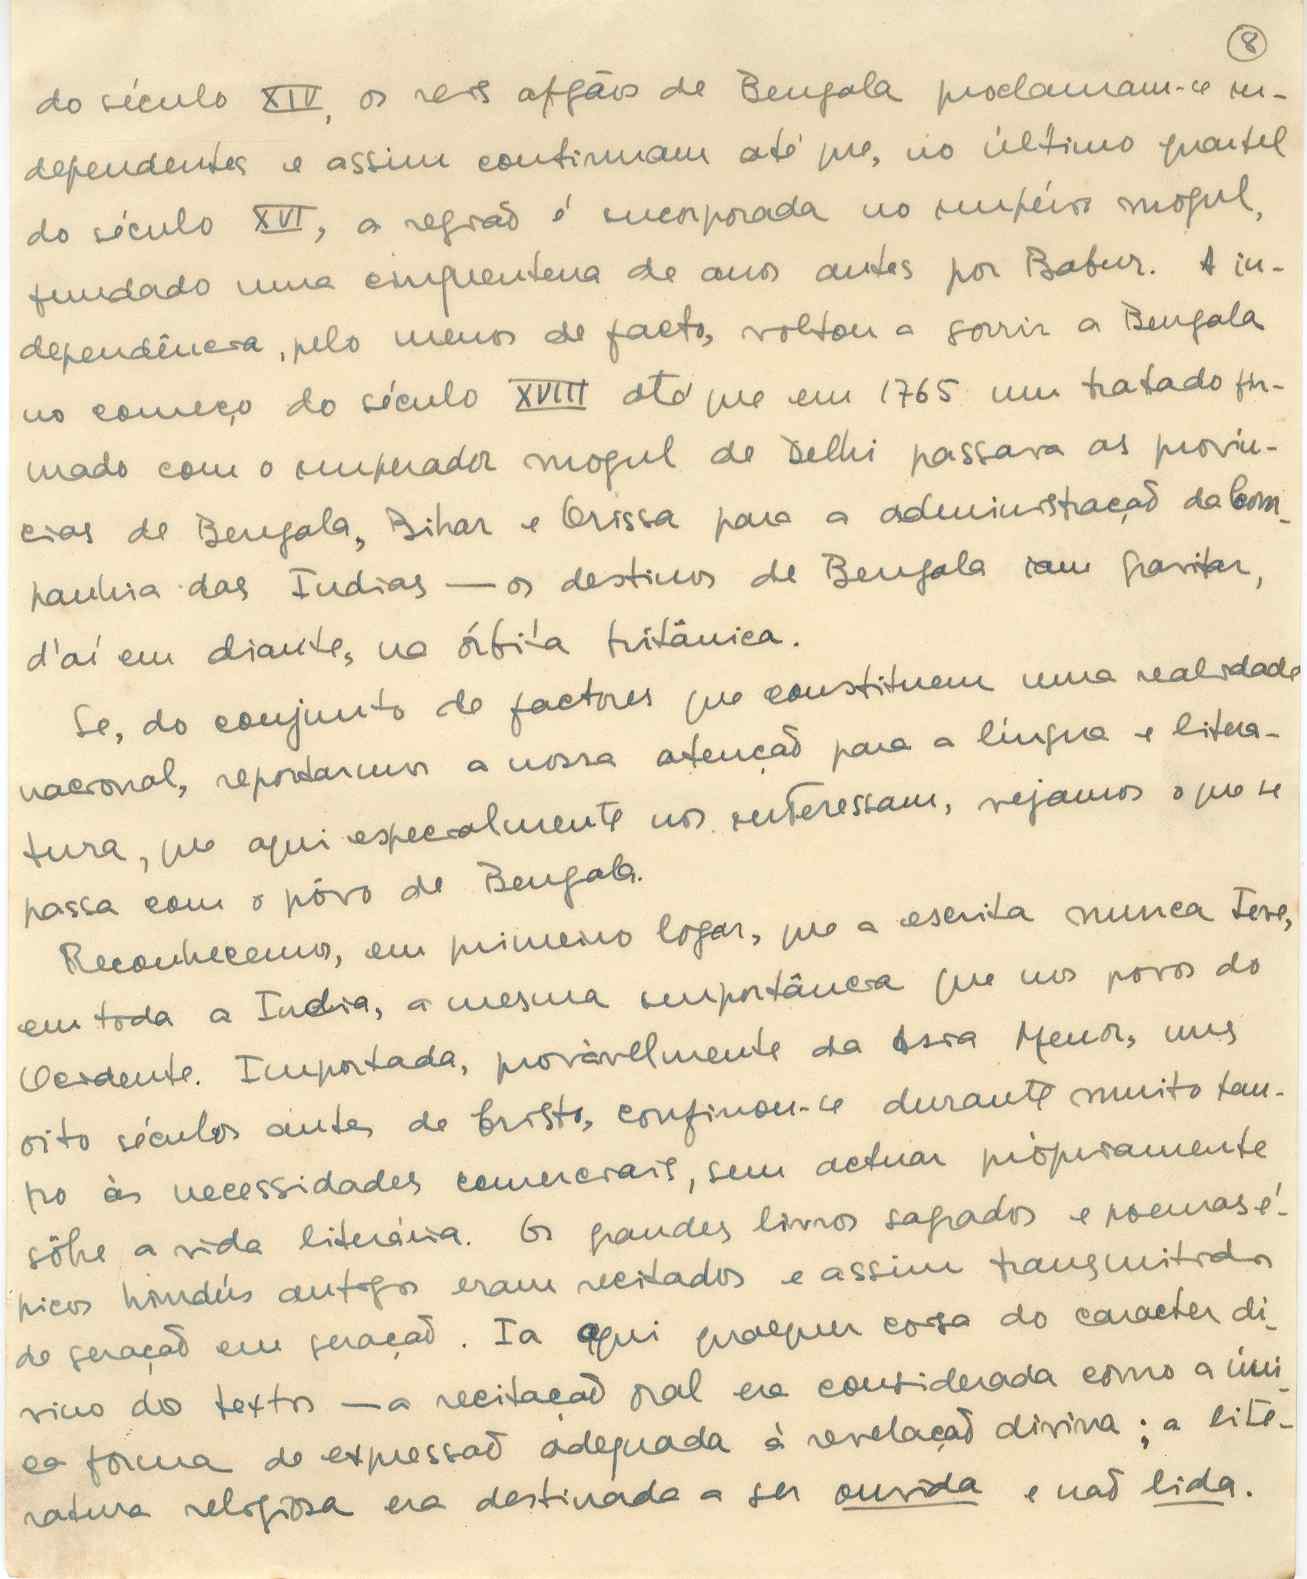 8
do século XIV, os reis afgãos de Bengala proclamam-se in-
dependentes e assim continuam até que, no último quartel
do século XVI, a região é incorporada no império mogul,
fundado uma cinquentena de anos antes por Babur. A in-
dependência, pelo menos de facto, voltou a sorrir a Bengala
no começo do século XVIII até que em 1765 um tratado fir-
mado com o imperador mogul de Delhi passava as provín-
cias de Bengala, Bihar e Orissa para a administração da Com-
panhia das Indias — os destinos de Bengala iam gravitar,
d'aí em diante, na órbita britânica.
Se, do conjunto de factores que constituem uma realidade
nacional, reportarmos a nossa atenção para a língua e litera-
tura, que aqui especialmente nos interessam, vejamos o que se
passa com o pôvo de Bengala.
Reconhecemos, em primeiro logar, que a escrita nunca teve,
em toda a India, a mesma importância que nos povos do
Ocidente. Importada, provàvelmente da Asia Menor, uns
oito séculos antes de Cristo, confinou-se durante muito tem-
po às necessidades comerciais, sem actuar pròpriamente
sôbre a vida literária. Os grandes livros sagrados e poemas é-
picos hindús antigos eram recitados e assim transmitidos
de geração em geração. Ia aqui qualquer coisa do caracter di-
vino do texto — a recitação oral era considerada como a úni-
ca forma de expressão adequada à revelação divina; a lite-
ratura religiosa era destinada a ser ouvida e não lida.